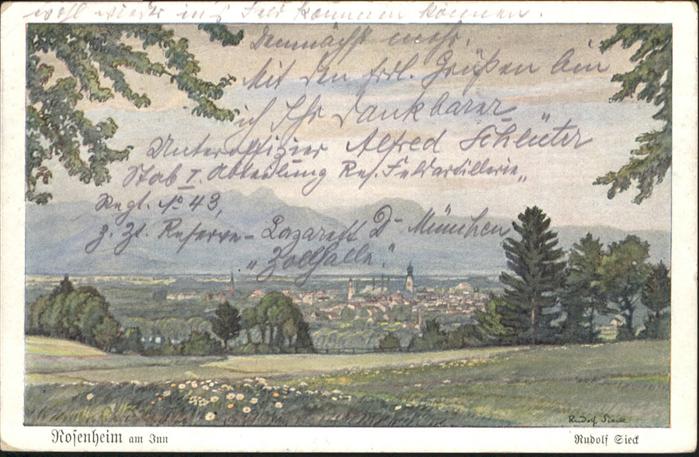 wohl wieder in's Feld kommen können.
Demnächst mehr.
Mit den frdl. Grüßen bin
ich Ihr dankbarer
Unteroffizier Alfred Schlüter
Stab I. Abteilung Res. Feldartillerie„
Regt. № 43,
z. Zt. Reserve-Lazarett D - München
"Zollhalle."
Rudolf Sieck
Rosenheim am Inn
Rudolf Sieck